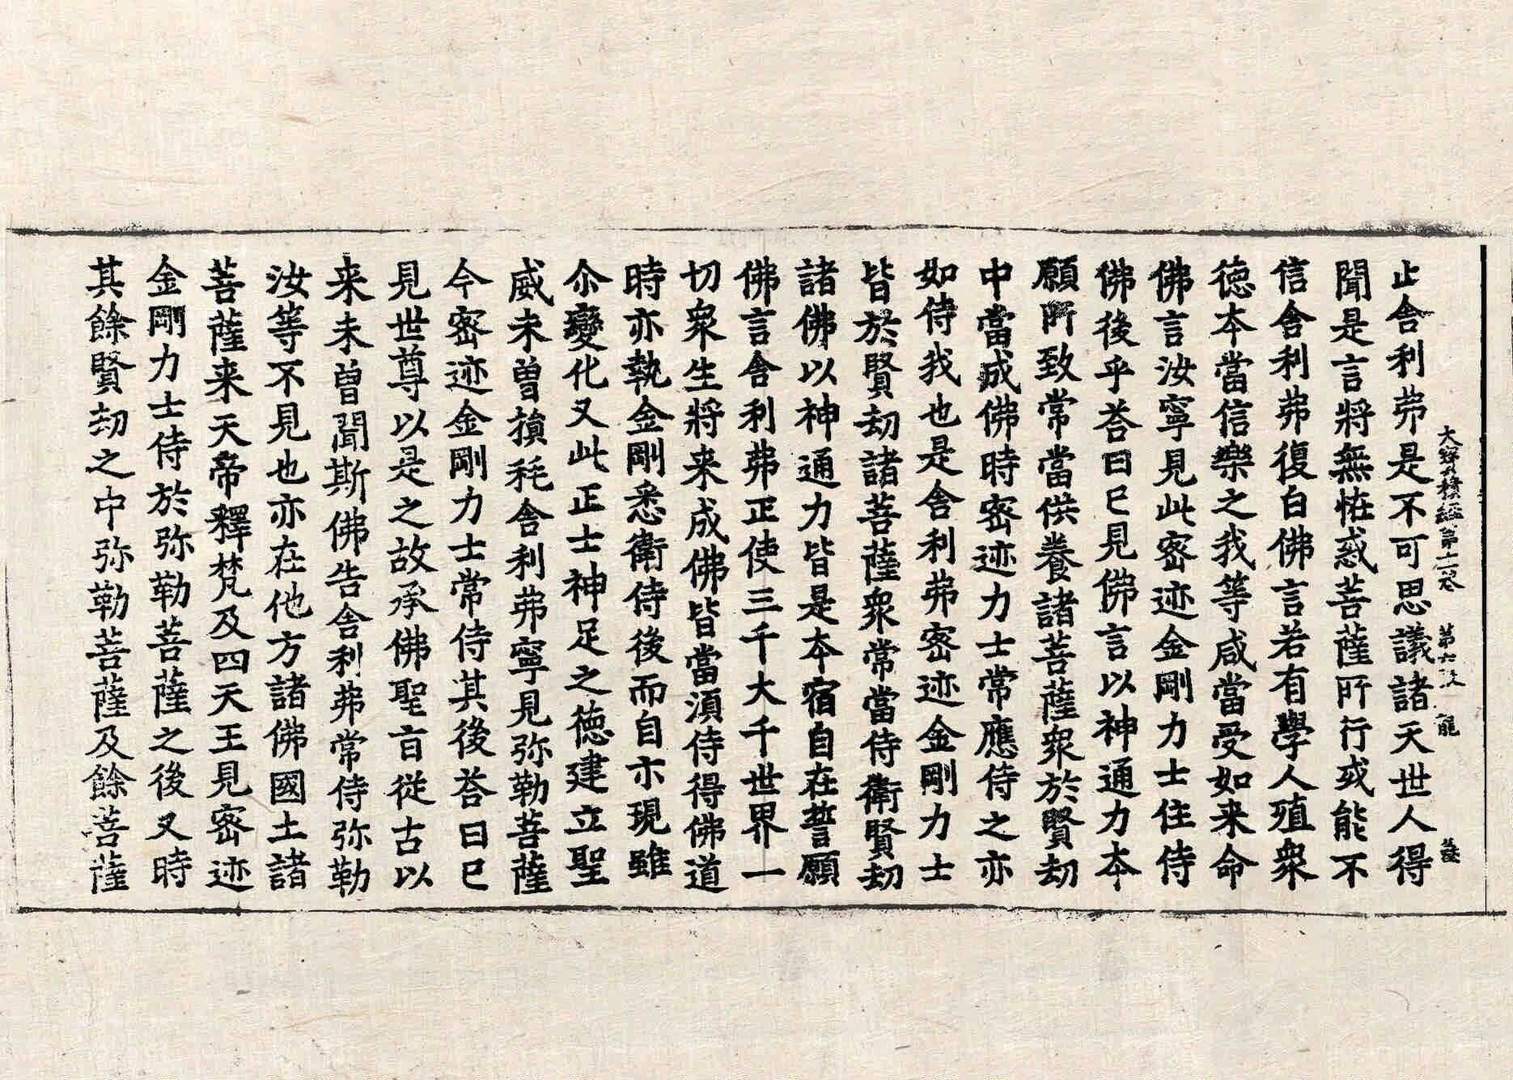 大寶積經第十二卷 第六張 龍
止舍利弗是不可思議諸天世人得
聞是言將無恠惑菩薩所行或能不
信舍利弗復白佛言若有學人殖衆
徳本當信樂之我等咸當受如来命
佛言汝寧見此密迹金剛力士住侍
佛後乎荅曰已見佛言以神通力本
願所致常當供養諸菩薩衆於賢劫
中當成佛時密迹力士常應侍之亦
如侍我也是舍利弗密迹金剛力士
皆於賢劫諸菩薩衆常當侍衛賢劫
諸佛以神通力皆是本宿自在誓願
佛言舍利弗正使三千大千世界一
切衆生將来成佛皆當湏侍得佛道
時亦執金剛悉衛侍後而自示現雖
尒變化又此正士神足之徳建立聖
威未曽損耗舍利弗寧見弥勒菩薩
今密迹金剛力士常侍其後荅曰已
見世尊以是之故承佛聖旨従古以
来未曽聞斯佛告舍利弗常侍弥勒
汝等不見也亦在他方諸佛國土諸
菩薩来天帝釋梵及四天王見密迹
金剛力士侍於弥勒菩薩之後又時
其餘賢劫之中弥勒菩薩及餘菩薩